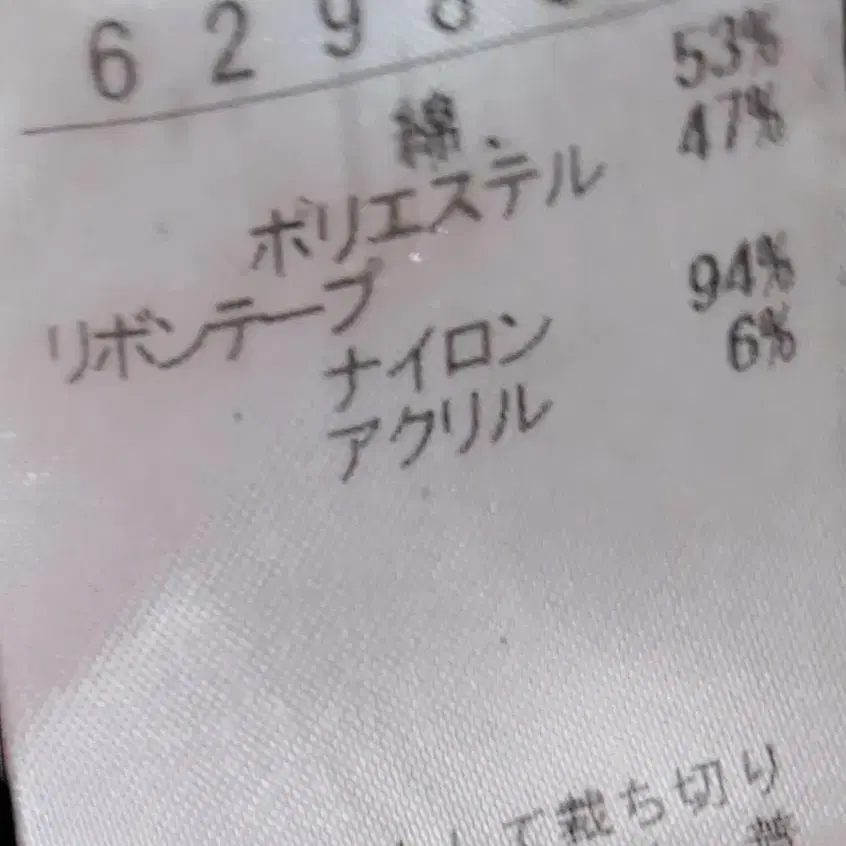 6298
綿 53%
ポリエステル 47%
リボンテープ
ナイロン 94%
アクリル 6%
て裁ち切り